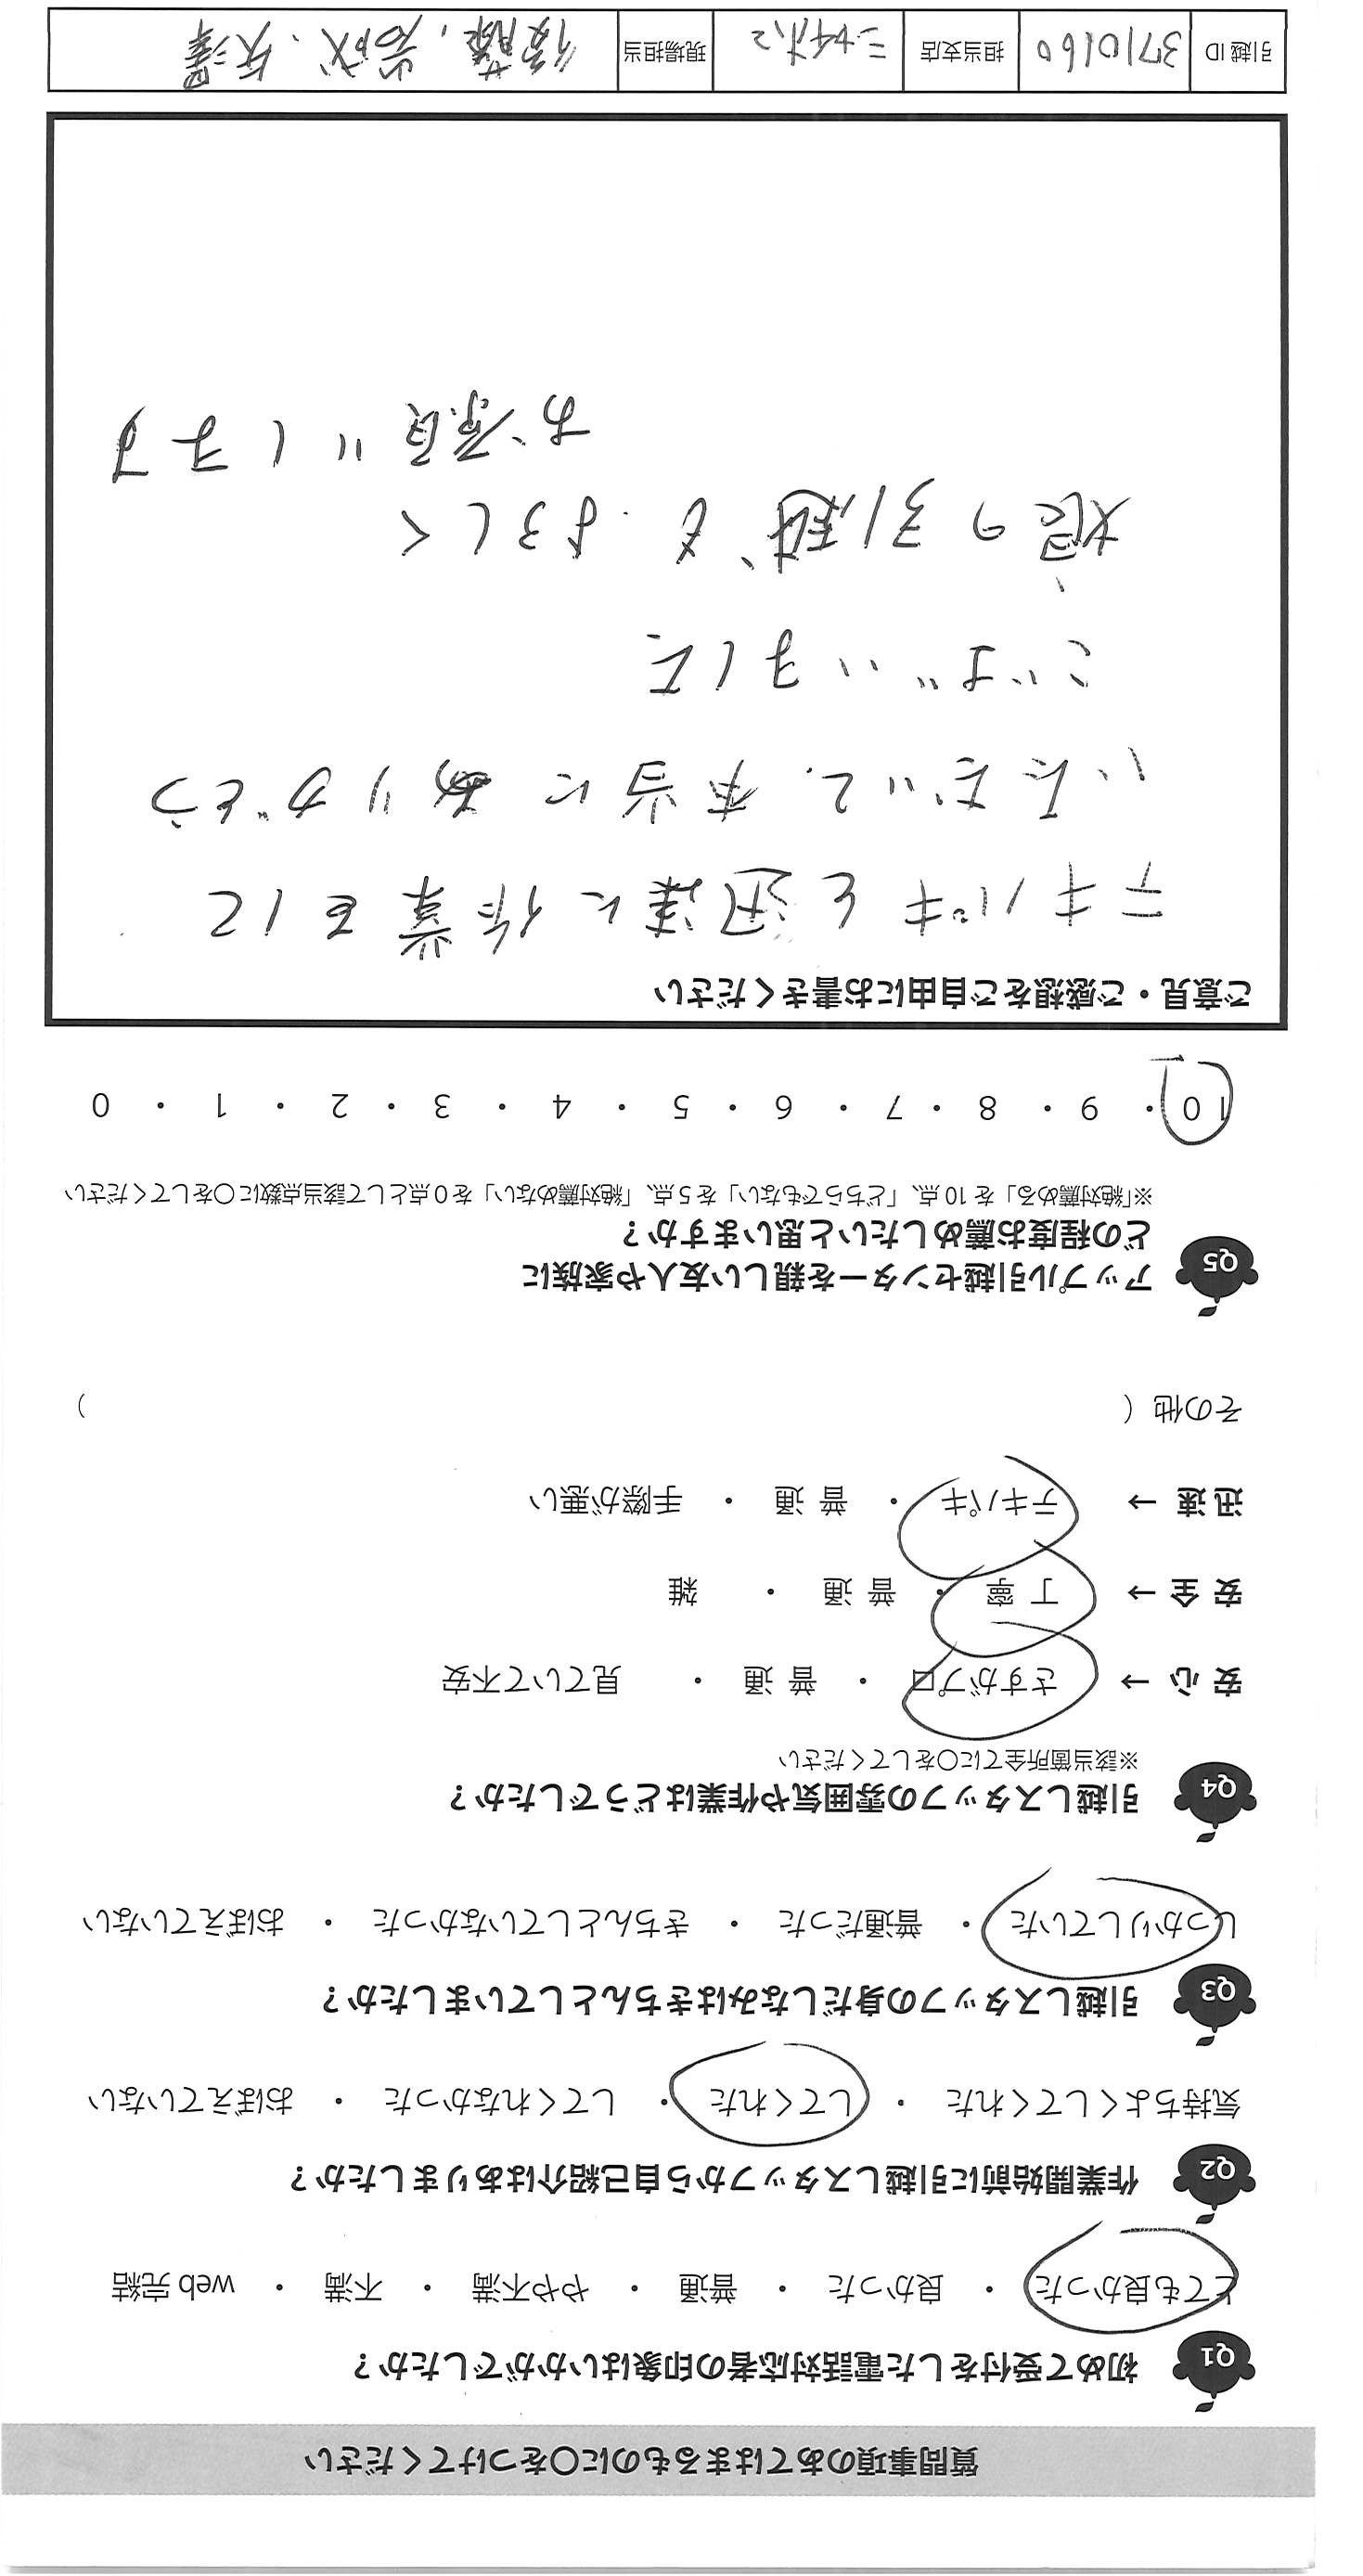 質問事項のあてはまるものに〇をつけてください
Q1 初めて受付をした電話対応者の印象はいかがでしたか？
とても良かった ・ 良かった ・ 普通 ・ やや不満 ・ 不満 ・ web 完結
Q2 作業開始前に引越しスタッフから自己紹介はありましたか？
気持ちよくしてくれた ・ してくれた ・ してくれなかった ・ おぼえていない
Q3 引越しスタッフの身だしなみはきちんとしていましたか？
しっかりしていた ・ 普通だった ・ きちんとしていなかった ・ おぼえていない
Q4 引越しスタッフの雰囲気や作業はどうでしたか？
※該当箇所全てに〇をしてください
安 心 → さすがプロ ・ 普 通 ・ 見ていて不安
安 全 → 丁 寧 ・ 普 通 ・ 雑
迅 速 → テキパキ ・ 普 通 ・ 手際が悪い
その他（ ）
Q5 アップル引越センターを親しい友人や家族に
どの程度お薦めしたいと思いますか？
※「絶対薦める」を 10 点、「どちらでもない」を 5 点、「絶対薦めない」を 0 点として該当点数に〇をしてください
10 ・ 9 ・ 8 ・ 7 ・ 6 ・ 5 ・ 4 ・ 3 ・ 2 ・ 1 ・ 0
ご意見・ご感想をご自由にお書きください
テキパキと迅速に作業をして
いただいて、本当にありがとう
ございました
娘の引越もよろしく
お願いします
引越 ID 3710160 担当支店 現場担当 後藤、岩成、矢澤